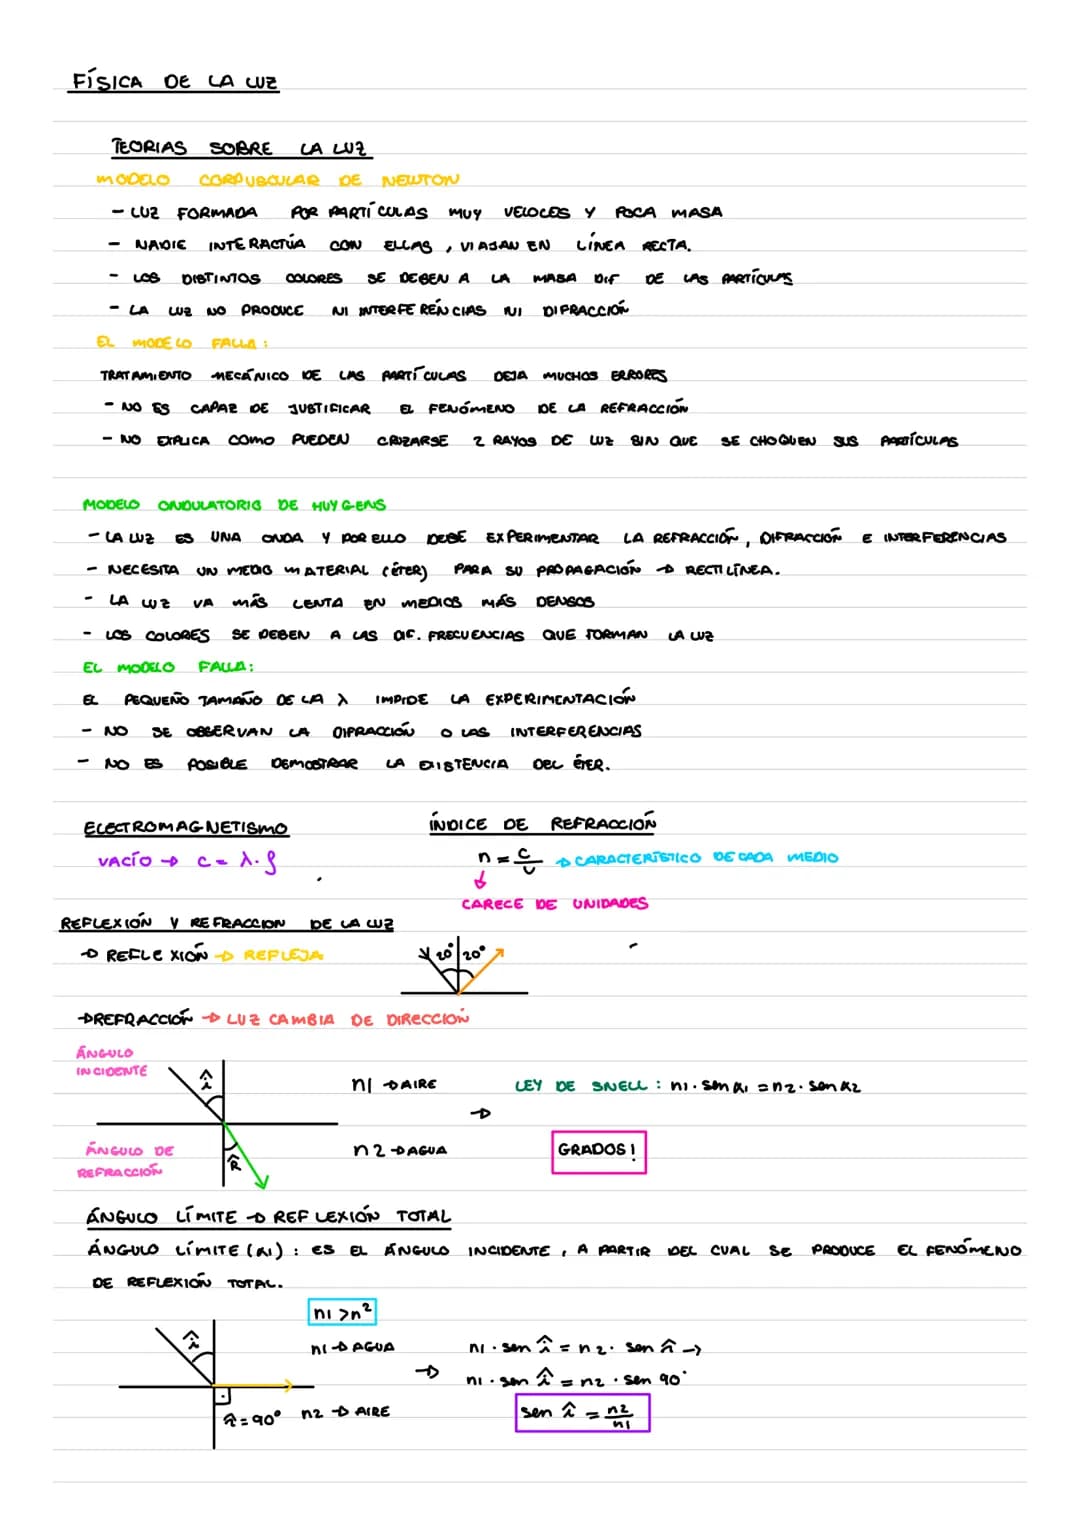 FÍSICA DE LA LUZ
TEORIAS SOBRE LA LUZ
MODELO CORPUSCULAR DE NEWTON
- LUZ FORMADA POR PARTÍCULAS MUY VELOCES Y POCA MASA
- NADIE INTERACTÚA CON ELLAS, VIAJAN EN LÍNEA RECTA.
- LOS DISTINTOS COLORES SE DEBEN A LA MASA DIF DE LAS PARTÍCULAS
- LA LUZ NO PRODUCE NI INTERFERENCIAS NI DIFRACCIÓN
EL MODELO FALLA:
TRATAMIENTO MECÁNICO DE LAS PARTÍCULAS DEJA MUCHOS ERRORES
- NO ES CAPAZ DE JUSTIFICAR EL FENÓMENO DE LA REFRACCIÓN
- NO EXPLICA COMO PUEDEN CRUZARSE 2 RAYOS DE LUZ SIN QUE SE CHOQUEN SUS PARTÍCULAS
MODELO ONDULATORIO DE HUYGENS
- LA LUZ ES UNA ONDA Y POR ELLO DEBE EXPERIMENTAR LA REFRACCIÓN, DIFRACCIÓN E INTERFERENCIAS
- NECESITA UN MEDIO MATERIAL (ÉTER) PARA SU PROPAGACIÓN → RECTILÍNEA.
- LA LUZ VA MÁS LENTA EN MEDIOS MÁS DENSOS
- LOS COLORES SE DEBEN A LAS DIF. FRECUENCIAS QUE FORMAN LA LUZ
EL MODELO FALLA:
EL PEQUEÑO TAMAÑO DE LA λ IMPIDE LA EXPERIMENTACIÓN
- NO SE OBSERVAN LA DIFRACCIÓN O LAS INTERFERENCIAS
- NO ES POSIBLE DEMOSTRAR LA EXISTENCIA DEL ÉTER.
ELECTROMAGNETISMO
VACÍO → c = λ·f
ÍNDICE DE REFRACCIÓN
n = c/v → CARACTERÍSTICO DE CADA MEDIO
↓
CARECE DE UNIDADES
REFLEXIÓN Y REFRACCION DE LA LUZ
→ REFLEXIÓN → REFLEJA
20° 20°
→ REFRACCIÓN → LUZ CAMBIA DE DIRECCIÓN
ÁNGULO
INCIDENTE
î
n1 → AIRE
LEY DE SNELL: n1·sen α1 = n2·sen α2
→
ÁNGULO DE
REFRACCIÓN
R̂
n2 → AGUA
GRADOS!
ÁNGULO LÍMITE → REFLEXIÓN TOTAL
ÁNGULO LÍMITE (α1): ES EL ÁNGULO INCIDENTE, A PARTIR DEL CUAL SE PRODUCE EL FENÓMENO
DE REFLEXIÓN TOTAL.
n1 > n²
î
n1 → AGUA
→
n1·sen î = n2·sen r̂ →
n1·sen î = n2·sen 90°
r̂ = 90°
n2 → AIRE
sen î = n2/n1